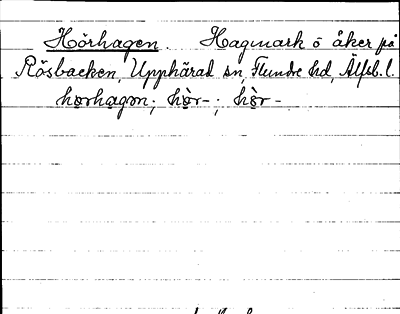 Hörhagen. Hagmark o åker på
Rösbacken, Upphärad sn, Flundre hd, Älfsb. l.
horhagon; hòr-; hòr-